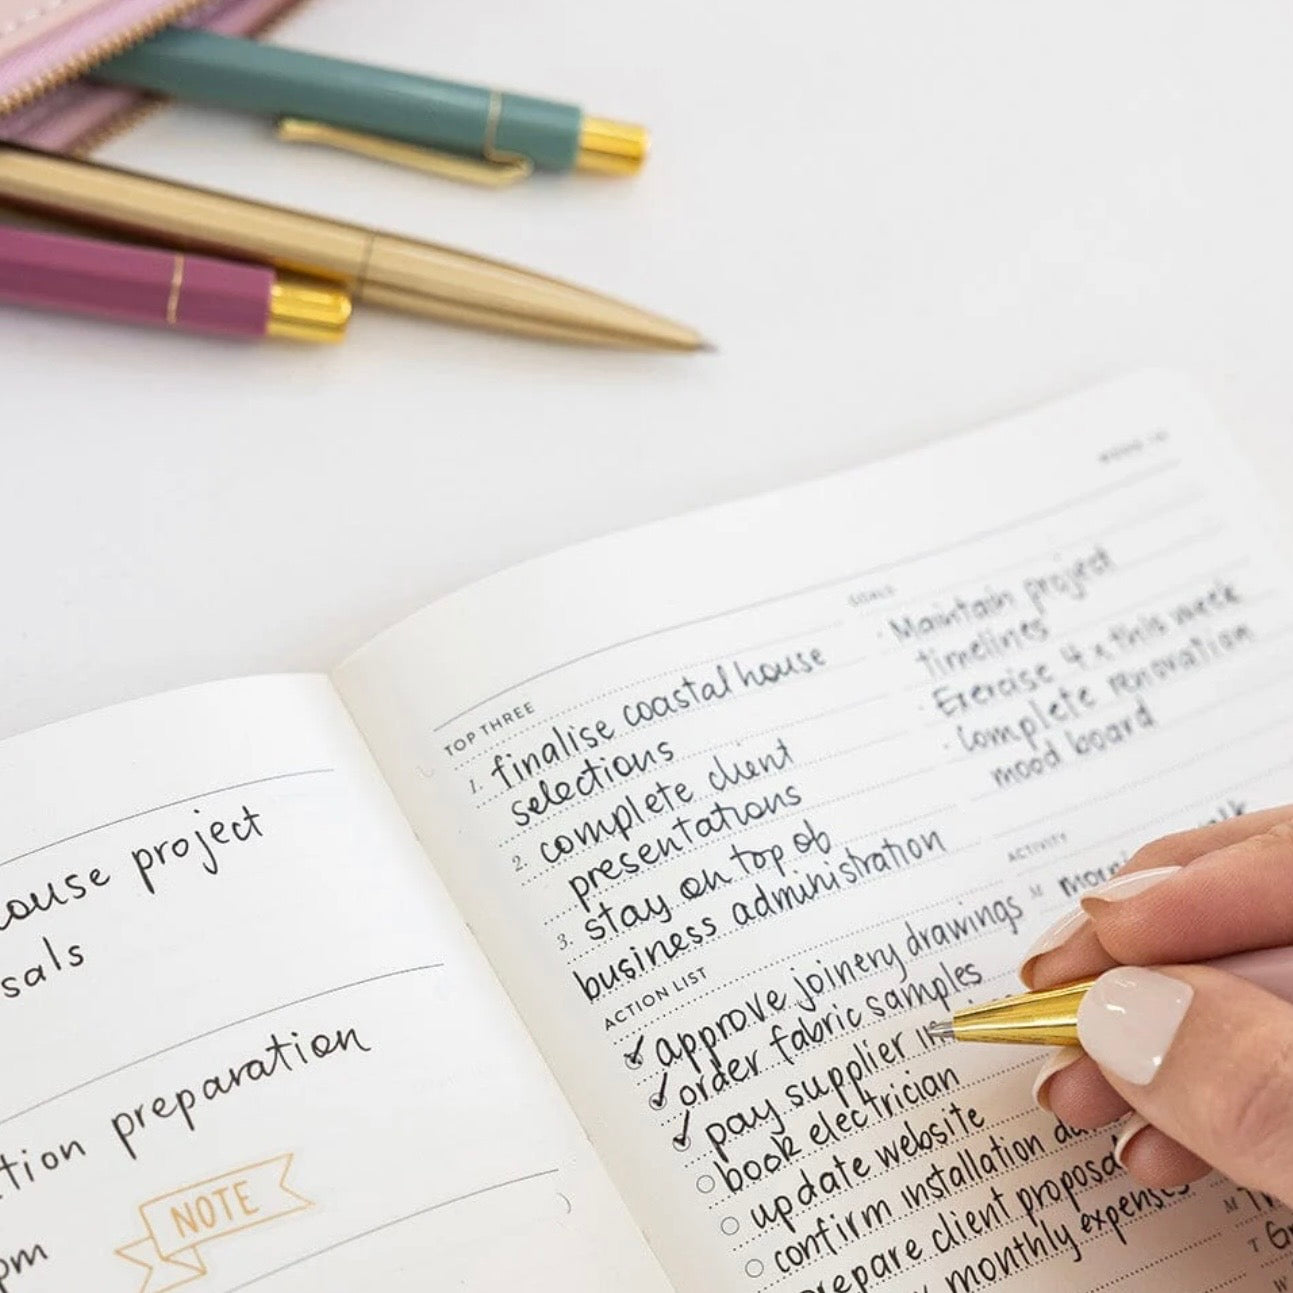 ouse project
sals
tion preparation
NOTE
pm
TOP THREE
1. finalise coastal house
selections
2. complete client
presentations
3. stay on top of
business administration
ACTION LIST
approve joinery drawings
order fabric samples
pay supplier
book electrician
update website
confirm installation
prepare client proposal
monthly expenses
GOALS
· Maintain project
timelines
· Exercise 4x this week
· Complete renovation
mood board
ACTIVITY
M
M
T
W